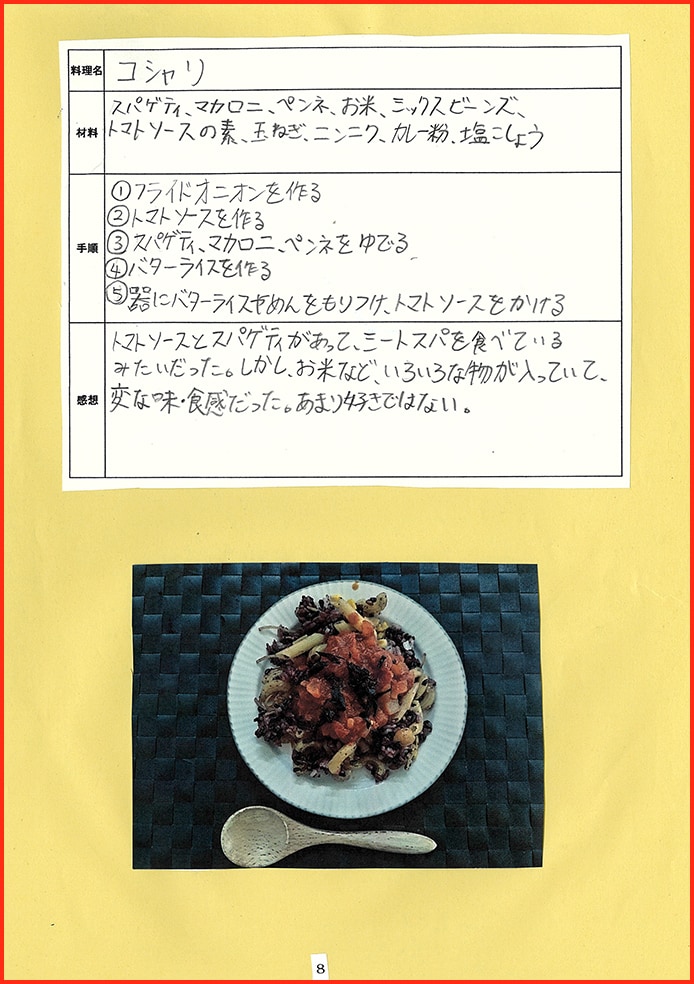 料理名
コシャリ
材料
スパゲティ、マカロニ、ペンネ、お米、ミックスビーンズ、
トマトソースの素、玉ねぎ、ニンニク、カレー粉、塩こしょう
手順
①フライドオニオンを作る
②トマトソースを作る
③スパゲティ、マカロニ、ペンネをゆでる
④バターライスを作る
⑤器にバターライスやめんをもりつけ、トマトソースをかける
感想
トマトソースとスパゲティがあって、ミートスパを食べている
みたいだった。しかし、お米など、いろいろな物が入っていて、
変な味・食感だった。あまり好きではない。
8